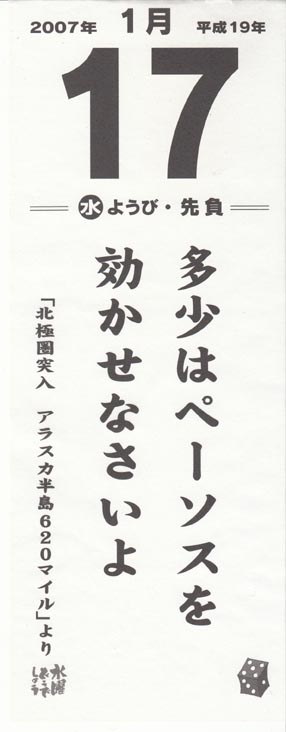 2007年 1月 平成19年
17
水ようび・先負
多少はペーソスを
効かせなさいよ
「北極圏突入 アラスカ半島620マイル」より
水曜
どうでしょう